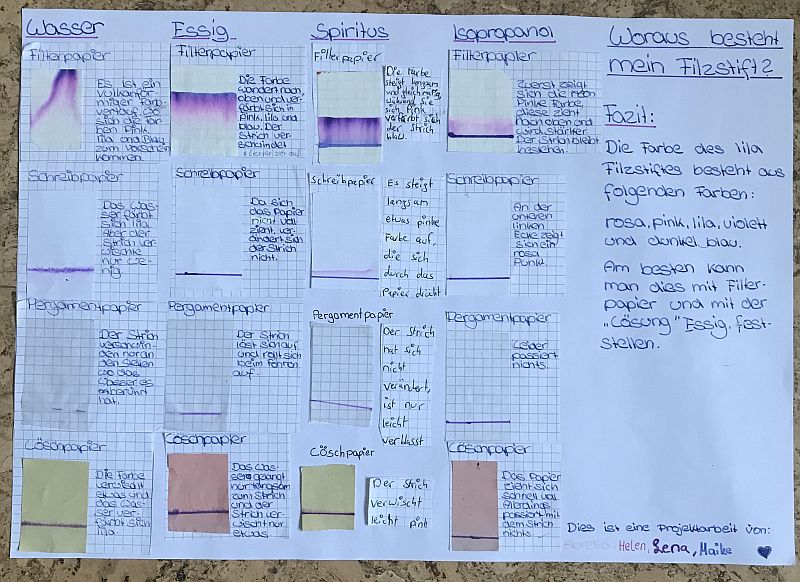 Wasser
Filterpapier
Es ist ein
vulkanför-
miger Farb-
verlauf, die
sich die Far-
ben Pink,
lila und Blau
zum vorschein
kommen.
Schreibpapier
Das Was-
ser färbt
sich lila.
Aber der
Strich ver-
wischte
nur we-
nig.
Pergamentpapier
Der Strich
verschwin-
den nur an
den Stellen
wo das
Wasser es
berührt
hat.
Löschpapier
Die Farbe
verwischt
etwas und
das Was-
ser ver-
färbt sich
lila.
Essig
Filterpapier
Die Farbe
wandert nach
oben und ver-
färbt sich in
Pink, lila und
blau. Der
Strich ver-
schwindet
Schreibpapier
Da sich
das Papier
nicht voll
zieht, ver-
ändert sich
der Strich
nicht.
Pergamentpapier
Der Strich
löst sich auf
und rollt sich
beim föhnen
auf.
Löschpapier
Das Was-
ser gelangt
nur langsam
zum Strich
und der
Strich ver-
wischt nur
etwas.
Spiritus
Filterpapier
Die Farbe
steigt langsam
und gleichmäßig,
während sie
sich Pink
verfärbt sich
der Strich
blau.
Schreibpapier
Es steigt
langsam
etwas pinke
Farbe auf,
die sich
durch das
Papier drückt
Pergamentpapier
Der Strich
hat sich
nicht
verändert,
ist nur
leicht
verblasst
Löschpapier
Der Strich
verwischt
leicht pink
Isopropanol
Filterpapier
Zuerst zeigt
sich die
Pinke Farbe,
diese zieht
nach oben und
wird stärker.
Der Strich bleibt
bestehen.
Schreibpapier
An der
unteren
linken
Ecke zeigt
sich ein
rosa
Punkt.
Pergamentpapier
Leider
passiert
nichts.
Löschpapier
Das Papier
zieht sich
schnell voll
Allerdings
passiert mit
dem Strich
nichts.
Woraus besteht
mein Filzstift?
Fazit:
Die Farbe des lila
Filzstiftes besteht aus
folgenden Farben:
rosa, pink, lila, violett
und dunkel blau.
Am besten kann
man dies mit Filter-
papier und mit der
„Lösung" Essig, fest-
stellen.
Dies ist eine Projektarbeit von:
Aurelia, Helen, Lena, Maike